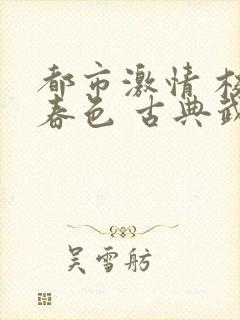 都市激情 校
春色 古典武
吴雪舫